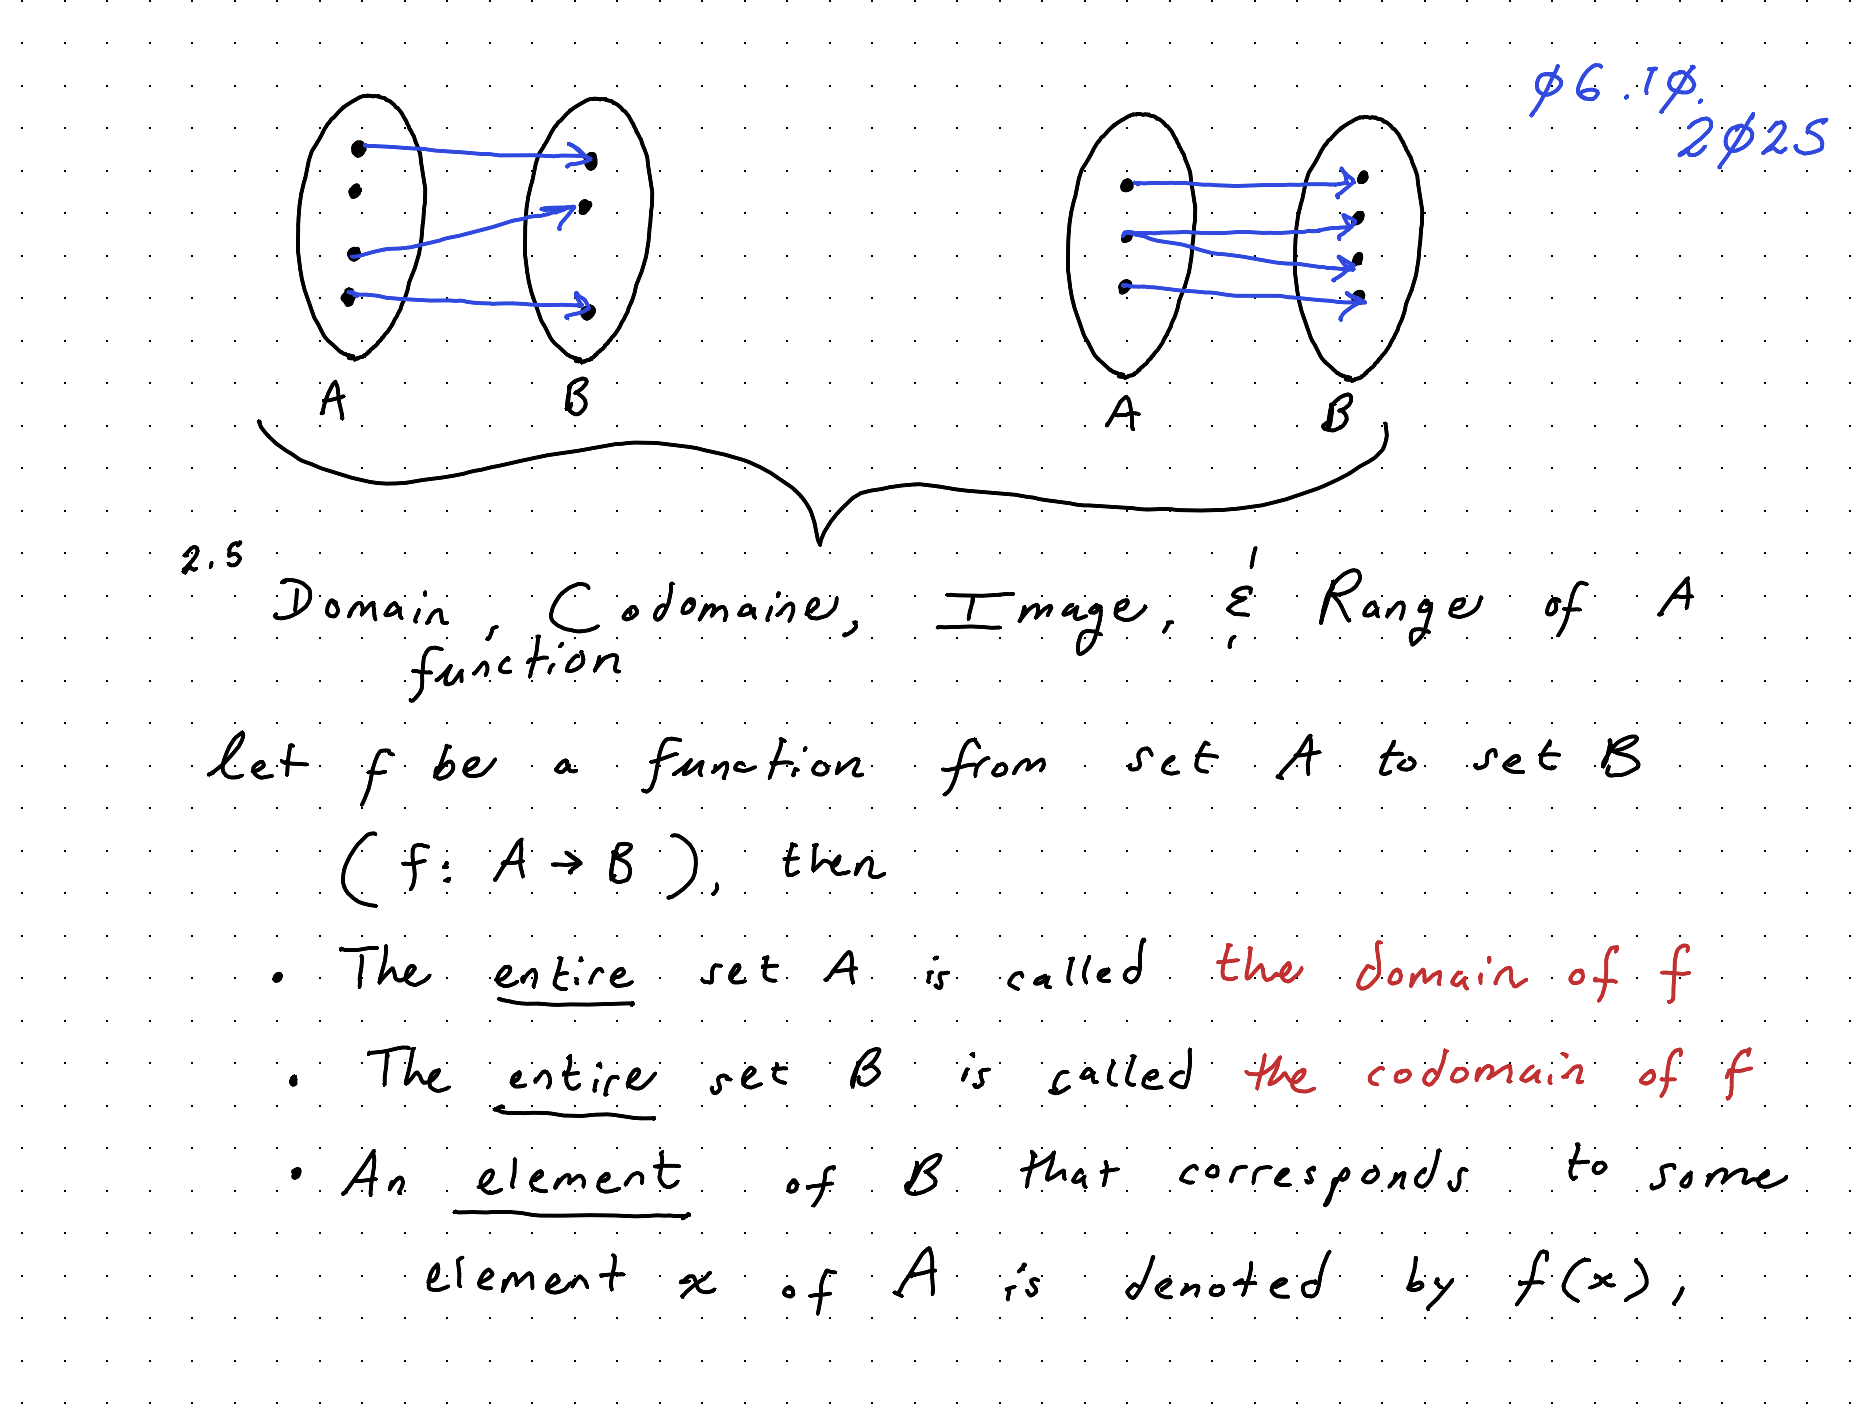 ø6.1ø.
2ø25
A B A B
2.5
Domain, Codomaine, Image, & Range of A
function
let f be a function from set A to set B
(f: A → B), then
• The entire set A is called the domain of f
• The entire set B is called the codomain of f
• An element of B that corresponds to some
element x of A is denoted by f(x),